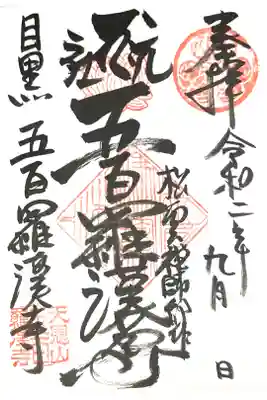 奉拝 令和二年九月 日
松雲禅師御作
五百羅漢
目黒 五百羅漢寺
天恩山
羅漢寺